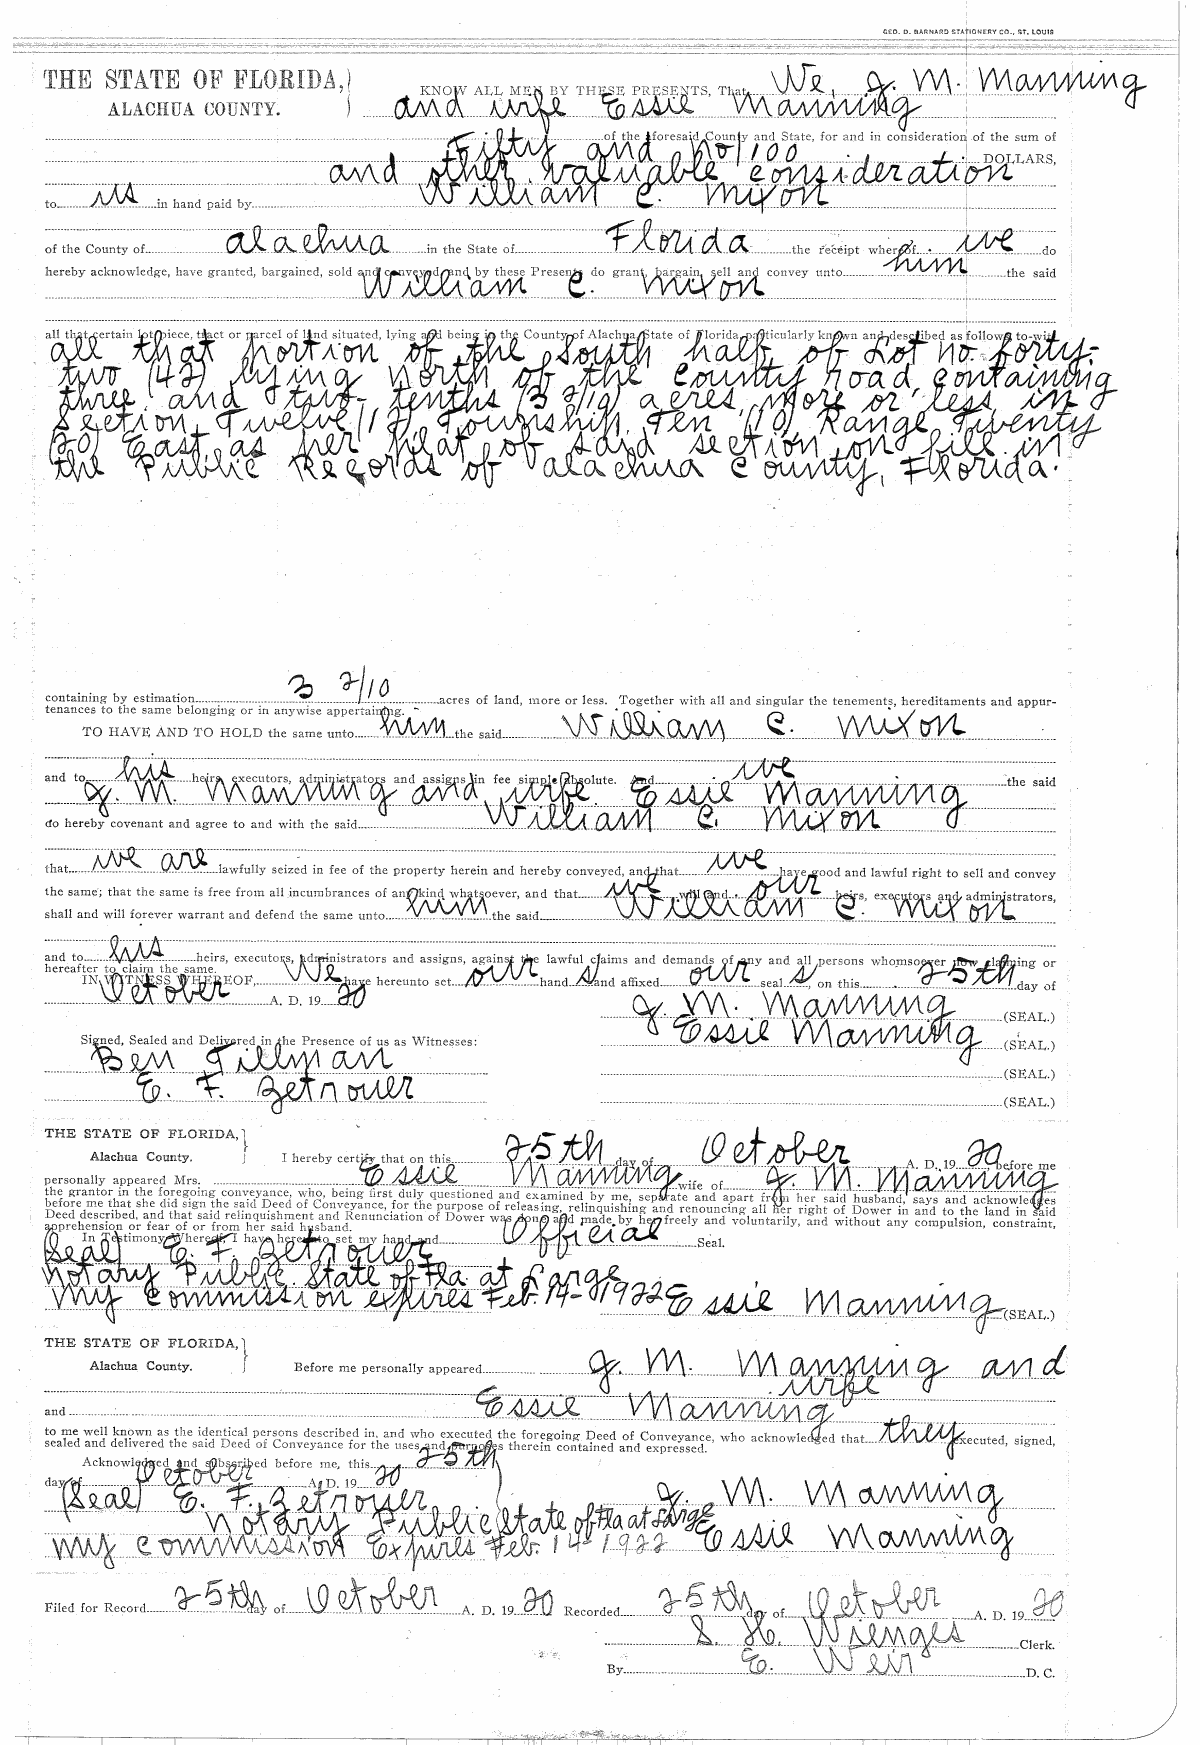 GEO. D. BARNARD STATIONERY CO., ST. LOUIS
THE STATE OF FLORIDA,
ALACHUA COUNTY.
KNOW ALL MEN BY THESE PRESENTS, That We, J. M. Manning
and wife Essie Manning
of the aforesaid County and State, for and in consideration of the sum of
Fifty and no/100 DOLLARS,
and other valuable consideration
to us in hand paid by William C. Mixon
of the County of Alachua in the State of Florida the receipt whereof we do
hereby acknowledge, have granted, bargained, sold and conveyed, and by these Presents do grant, bargain, sell and convey unto him the said
William C. Mixon
all that certain lot, piece, tract or parcel of land situated, lying and being in the County of Alachua, State of Florida, particularly known and described as follows, to-wit:
all that portion of the South half of Lot no. forty-
two (42) lying north of the county road, containing
three and two-tenths (3 2/10) acres, more or less, in
Section Twelve (12), Township Ten (10) Range Twenty
(20) East as per plat of said section on file in
the Public Records of Alachua County, Florida.
containing by estimation 3 2/10 acres of land, more or less. Together with all and singular the tenements, hereditaments and appur-
tenances to the same belonging or in anywise appertaining.
TO HAVE AND TO HOLD the same unto him the said William C. Mixon
and to his heirs, executors, administrators and assigns in fee simple absolute. And we the said
J. M. Manning and wife Essie Manning
do hereby covenant and agree to and with the said William C. Mixon
that we are lawfully seized in fee of the property herein and hereby conveyed, and that we have good and lawful right to sell and convey
the same; that the same is free from all incumbrances of any kind whatsoever, and that we will and our heirs, executors and administrators,
shall and will forever warrant and defend the same unto him the said William C. Mixon
and to his heirs, executors, administrators and assigns, against the lawful claims and demands of any and all persons whomsoever now claiming or
hereafter to claim the same.
IN WITNESS WHEREOF, We have hereunto set our hand s and affixed our seal s on this 25th day of
October A. D. 19 20
J. M. Manning (SEAL.)
Essie Manning (SEAL.)
Signed, Sealed and Delivered in the Presence of us as Witnesses:
Ben Tillman (SEAL.)
E. F. Zetrouer (SEAL.)
THE STATE OF FLORIDA,
Alachua County.
I hereby certify that on this 25th day of October A. D. 19 20 before me
personally appeared Mrs. Essie Manning wife of J. M. Manning
the grantor in the foregoing conveyance, who, being first duly questioned and examined by me, separate and apart from her said husband, says and acknowledges
before me that she did sign the said Deed of Conveyance, for the purpose of releasing, relinquishing and renouncing all her right of Dower in and to the land in said
Deed described, and that said relinquishment and Renunciation of Dower was done and made by her freely and voluntarily, and without any compulsion, constraint,
apprehension or fear of or from her said husband.
In Testimony Whereof, I have hereunto set my hand and Official Seal.
(Seal) E. F. Zetrouer
Notary Public State of Fla at Large
My commission expires Feb. 14-1922 Essie Manning (SEAL.)
THE STATE OF FLORIDA,
Alachua County.
Before me personally appeared J. M. Manning and
wife
and Essie Manning
to me well known as the identical persons described in, and who executed the foregoing Deed of Conveyance, who acknowledged that they executed, signed,
sealed and delivered the said Deed of Conveyance for the uses and purposes therein contained and expressed.
Acknowledged and subscribed before me, this 25th
day of October A. D. 19 20
(Seal) E. F. Zetrouer J. M. Manning
Notary Public State of Fla at Large
My commission Expires Feb. 14-1922 Essie Manning
Filed for Record 25th day of October A. D. 19 20 Recorded 25th day of October A. D. 19 20
S. H. Wienges Clerk.
By E. Weir D. C.